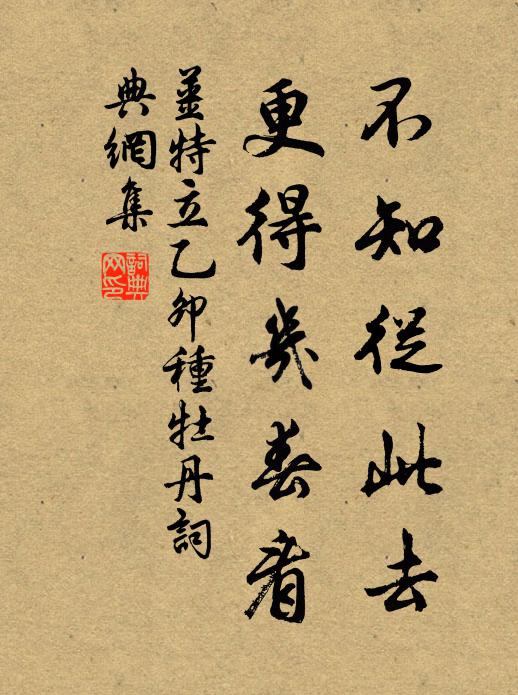 不知從此去
更得幾春看
姜特立乙卯種牡丹詞
典網集
詞典網印